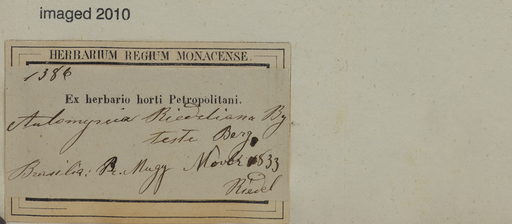 imaged 2010
HERBARIUM REGIUM MONACENSE.
1386
Ex herbario horti Petropolitani.
Aulomyrcia Riedeliana Bg
teste Berg.
Brasilia: Novbr 1833
Riedel